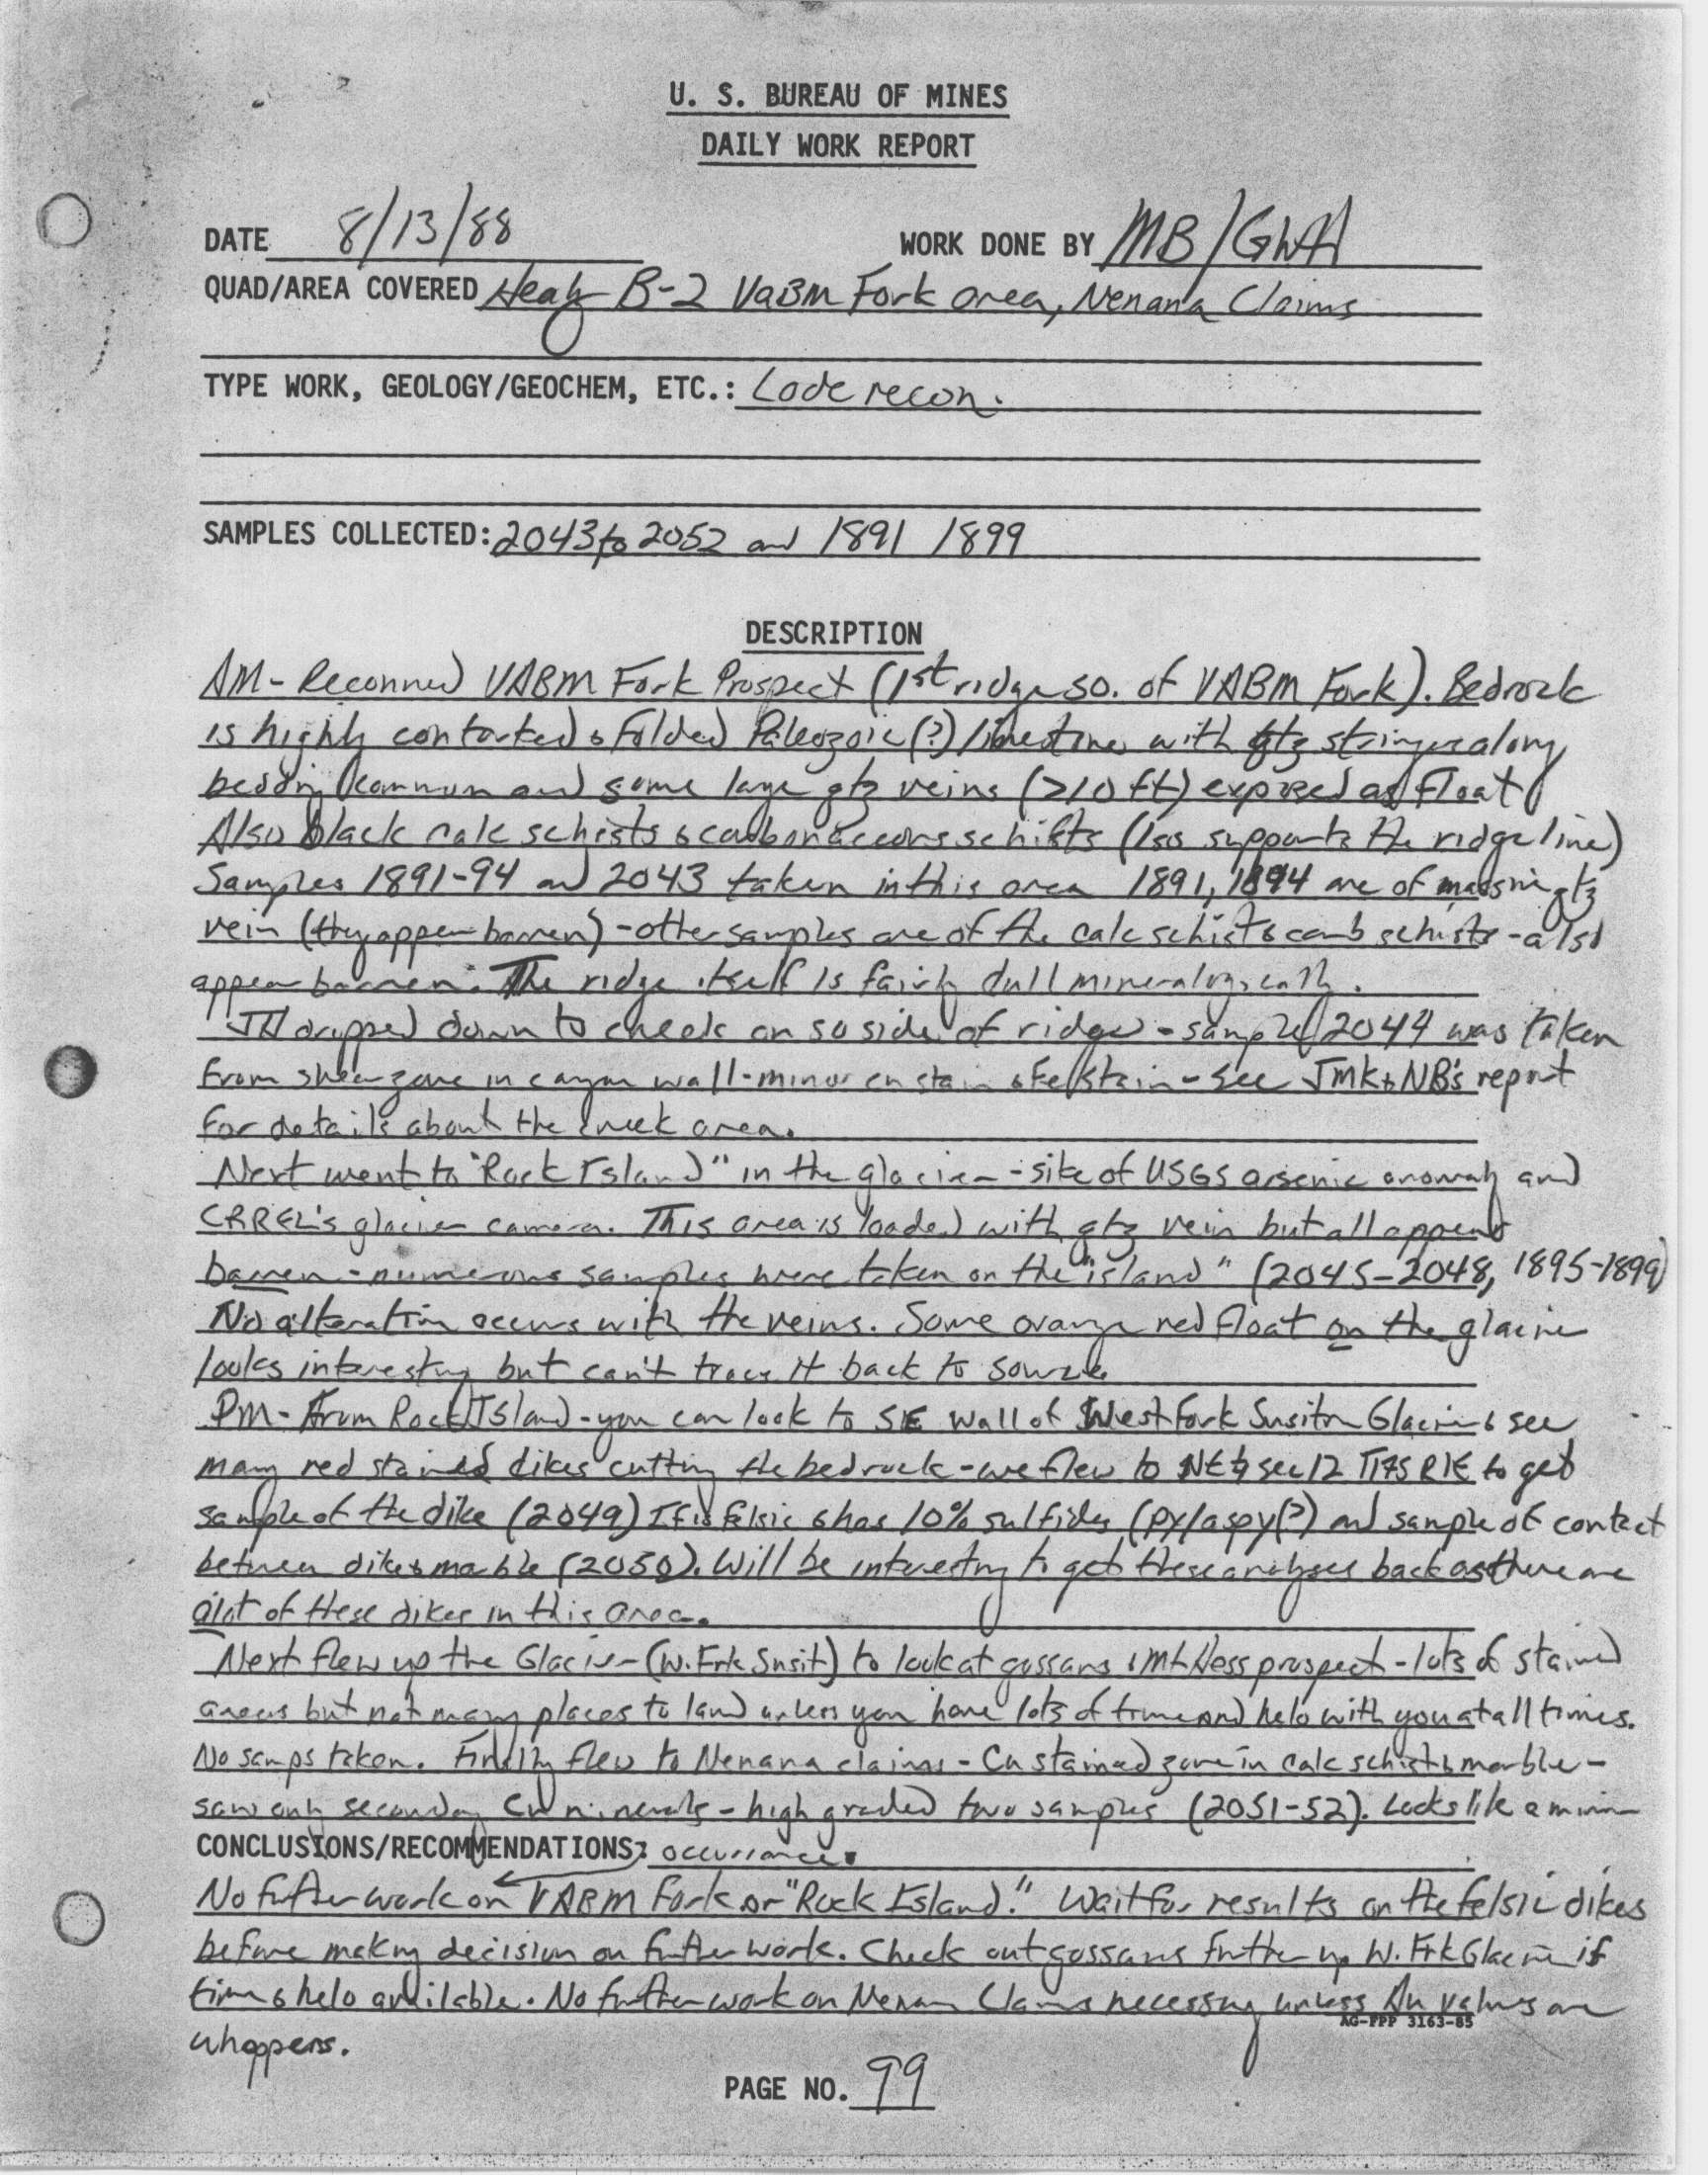 U. S. BUREAU OF MINES
DAILY WORK REPORT
DATE 8/13/88 WORK DONE BY MB/GWH
QUAD/AREA COVERED Healy B-2 VABM Fork area, Nenana Claims
TYPE WORK, GEOLOGY/GEOCHEM, ETC.: Lode recon.
SAMPLES COLLECTED: 2043 to 2052 and 1891 1899
DESCRIPTION
AM- Reconned VABM Fork Prospect (1st ridge so. of VABM Fork). Bedrock
is highly contorted & folded Paleozoic (?) limestones with qtz stringers along
bedding common and some large qtz veins (>10 ft) exposed as float
Also black calc schists & carbonaceous schists (lss supports the ridge line)
Samples 1891-94 and 2043 taken in this area 1891, 1894 are of massive qtz
vein (they appear barren) - other samples are of the calc schists & carb schists - also
appear barren. The ridge itself is fairly dull mineralogically.
dropped down to creek on so side of ridge - sample 2044 was taken
from shear zone in canyon wall - minor cu stain & Fe stain - see JMK & NB's report
for details about the creek area.
Next went to "Rock Island" in the glacier - site of USGS arsenic anomaly and
CRREL's glacier camera. This area is loaded with qtz vein but all appear
barren - numerous samples were taken on the "island" (2045-2048, 1895-1899)
No alteration occurs with the veins. Some orange red float on the glacier
looks interesting but can't trace it back to source.
PM- From Rock Island - you can look to SE wall of West Fork Susitna Glacier & see
many red stained dikes cutting the bedrock - we flew to NE¼ sec 12 T17S R1E to get
sample of the dike (2049) It is felsic & has 10% sulfides (py/aspy(?) and sample of contact
between dike & marble (2050). Will be interesting to get these analyses back as there are
alot of these dikes in this area.
Next flew up the Glacier (W. Frk Susit) to look at gossans & Mt Hess prospect - lots of stained
areas but not many places to land unless you have lots of time and helo with you at all times.
No samps taken. Finally flew to Nenana claims - Cu stained zone in calc schist & marble -
saw only secondary Cu minerals - high graded two samples (2051-52). Looks like a minor
CONCLUSIONS/RECOMMENDATIONS: occurrance.
No further work on VABM Fork or "Rock Island." Wait for results on the felsic dikes
before making decision on further work. Check out gossans further up W. Frk Glacier if
time & helo available. No further work on Nenana Claims necessary unless Au values are
whoppers.
AG-FPP 3163-85
PAGE NO. 99